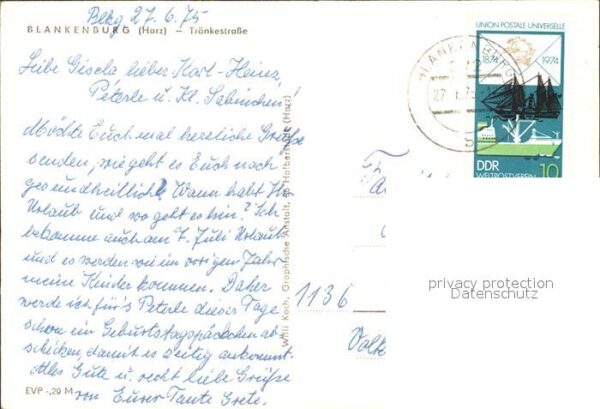 Blkg 27.6.75
BLANKENBURG (Harz) — Tränkestraße
Liebe Gisela lieber Karl-Heinz,
Peterle u. Kl. Sabinchen!
Möchte Euch mal herzliche Grüße
senden, wie geht es Euch noch
gesundheitlich? Wann habt Ihr
Urlaub und wo geht es hin? Ich
bekomme auch am 7. Juli Urlaub
und es werden wie im vorigen Jahr
meine Kinder kommen. Daher
werde ich für's Peterle dieser Tage
schon ein Geburtstagspäckchen ab-
schicken, damit es zeitig ankommt.
Alles Gute u. recht liebe Grüße
von Eurer Tante Grete.
EVP -,20 M
Willi Koch, Graphische Anstalt, Halberstadt (Harz)
UNION POSTALE UNIVERSELLE
1874 1974
DDR
WELTPOSTVEREIN 10
BLANKENBURG
27.
5
Fa
1136
Volk
privacy protection
Datenschutz